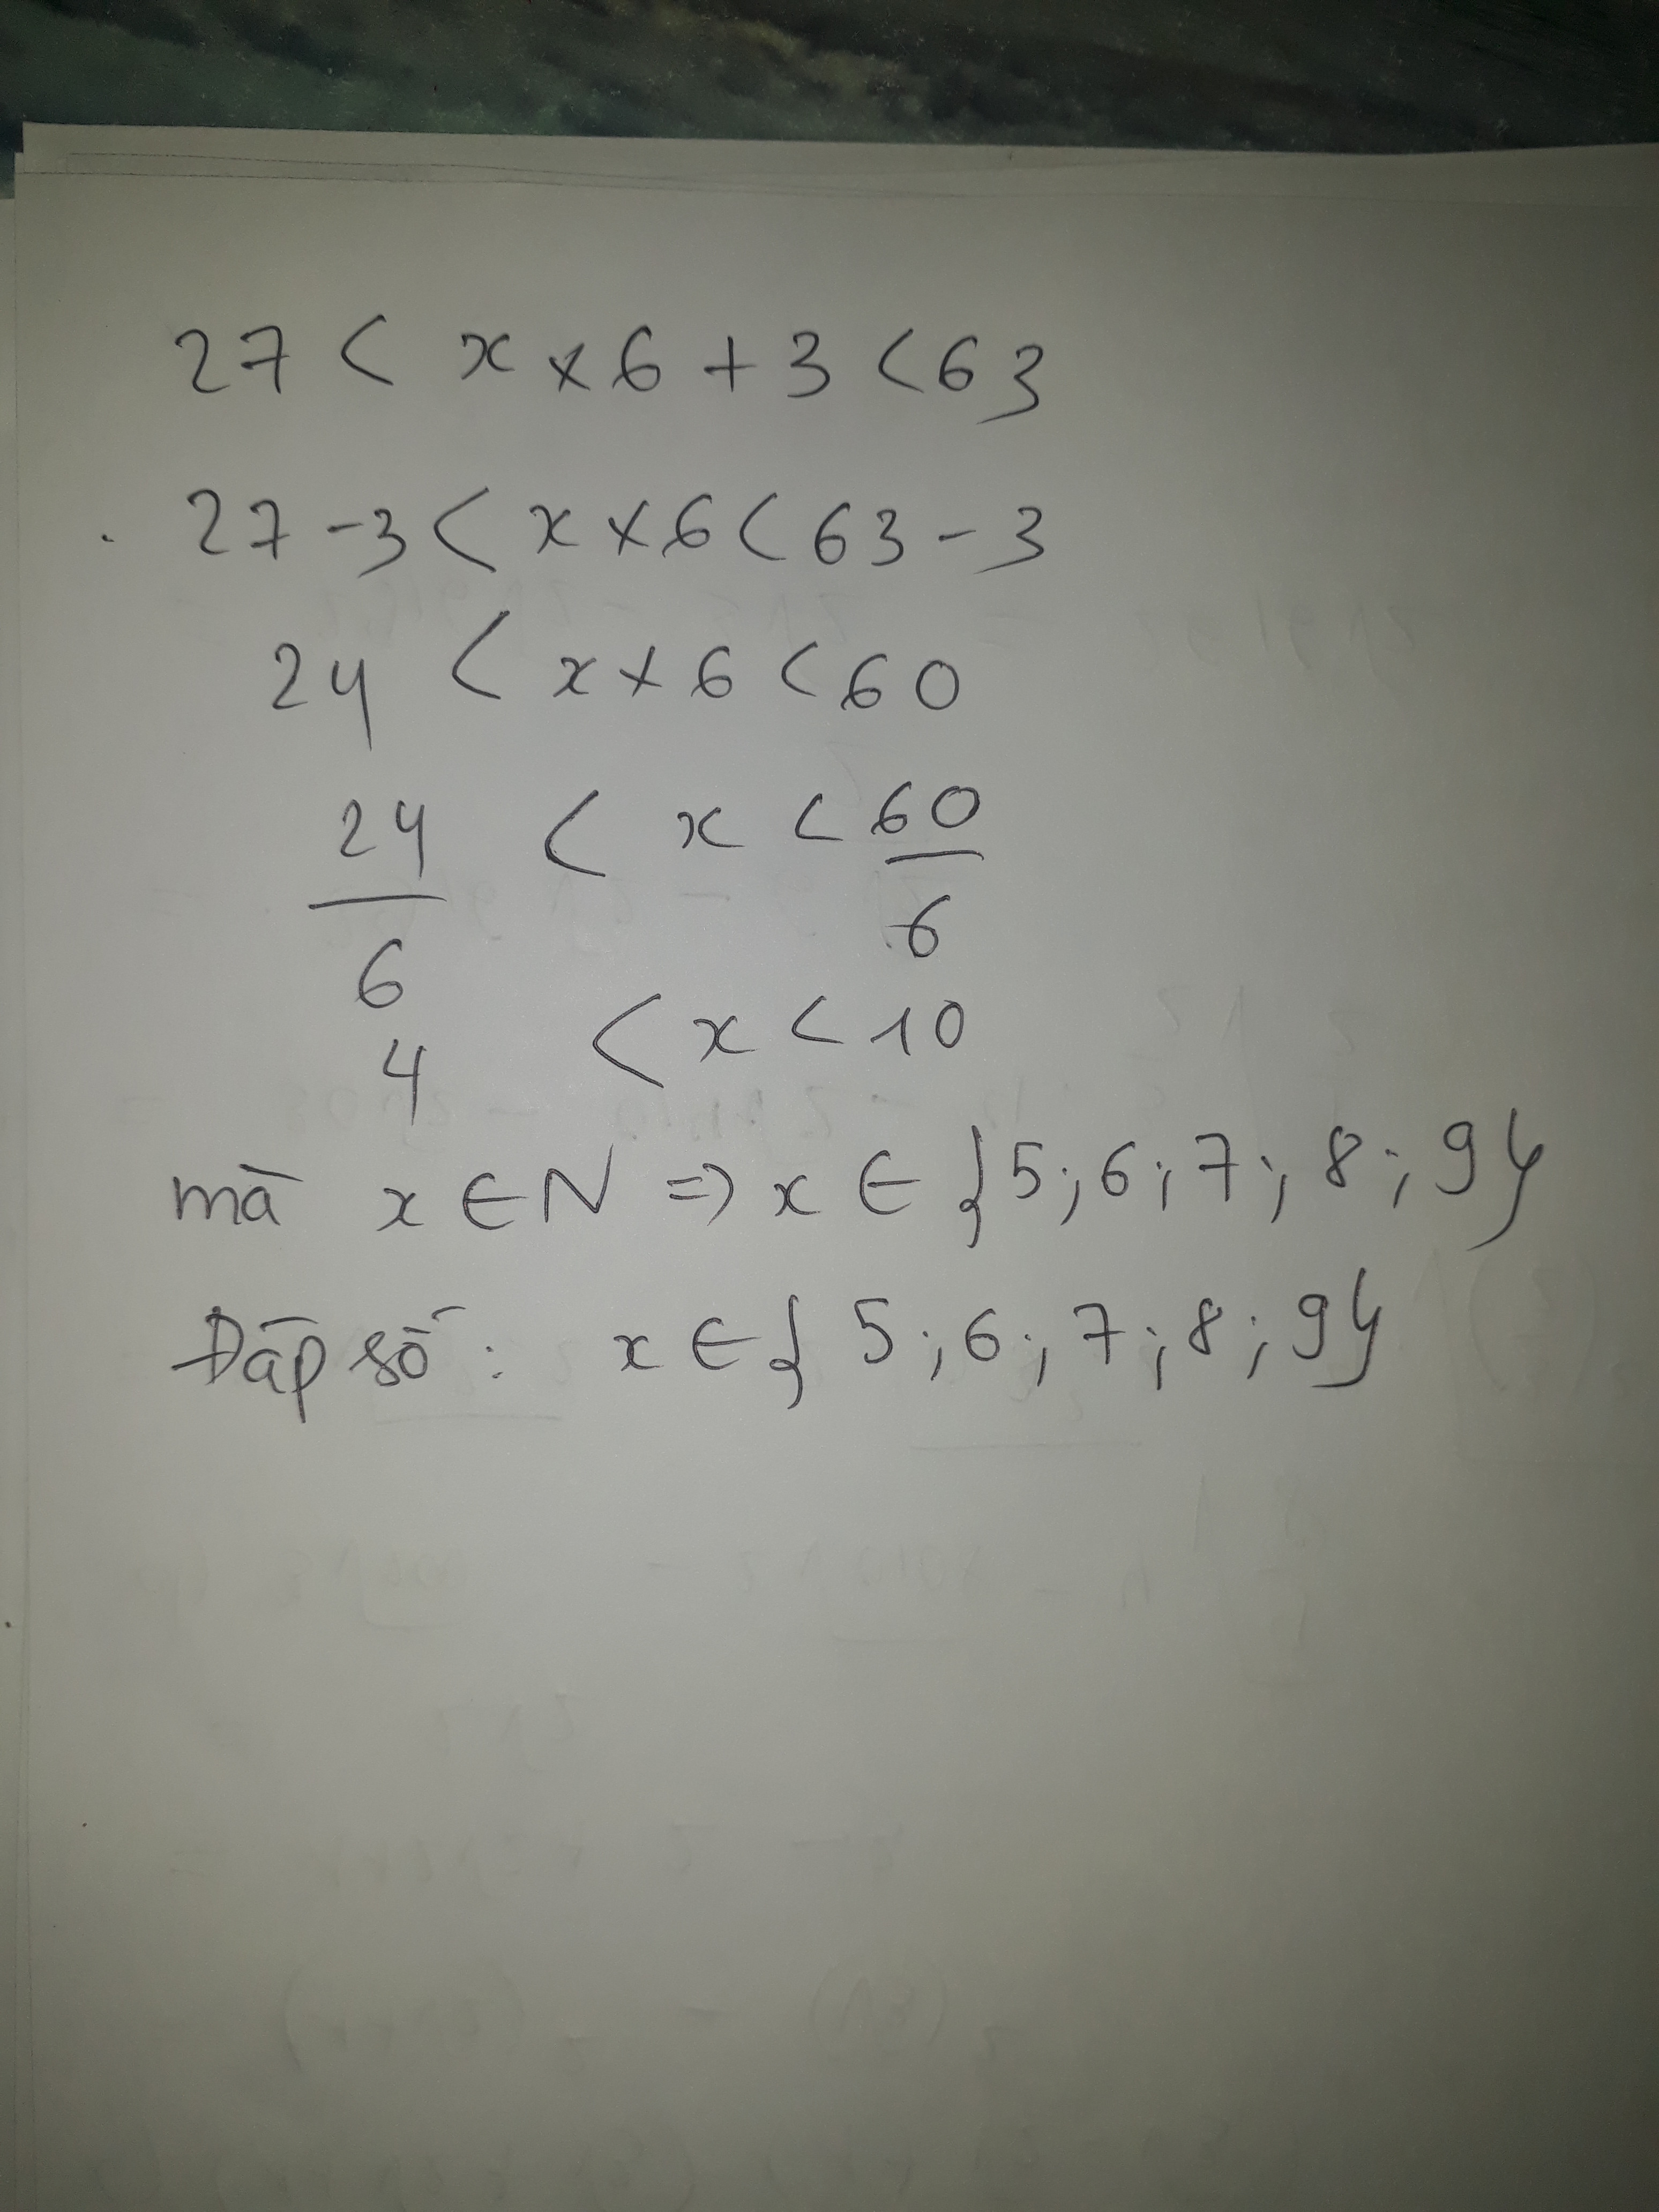 27 < x × 6 + 3 < 63
27 - 3 < x × 6 < 63 - 3
24 < x × 6 < 60
24/6 < x < 60/6
4 < x < 10
mà x ∈ N => x ∈ {5; 6; 7; 8; 9}
Đáp số: x ∈ {5; 6; 7; 8; 9}